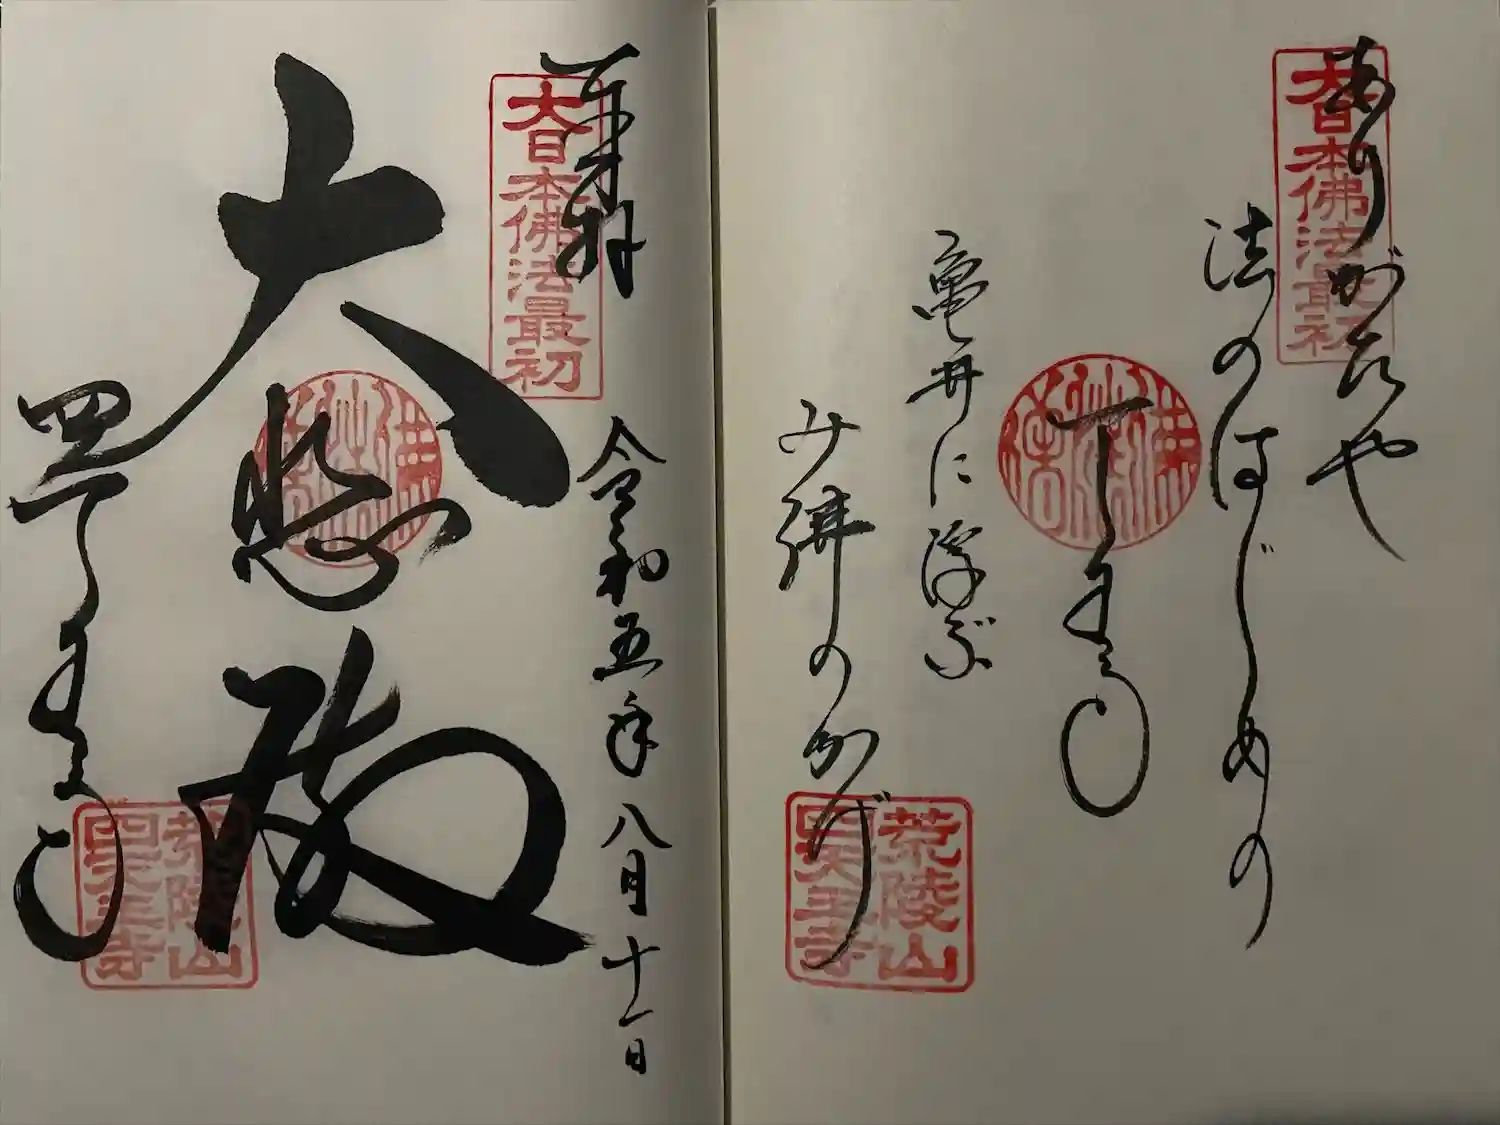 ありがたや
大日本佛法最初
法のはじめの
天王寺
亀井に浮ぶ
み佛のかげ
荒陵山
四天王寺
奉拝
大日本佛法最初
令和五年八月十一日
大悲殿
四天王寺
荒陵山
四天王寺